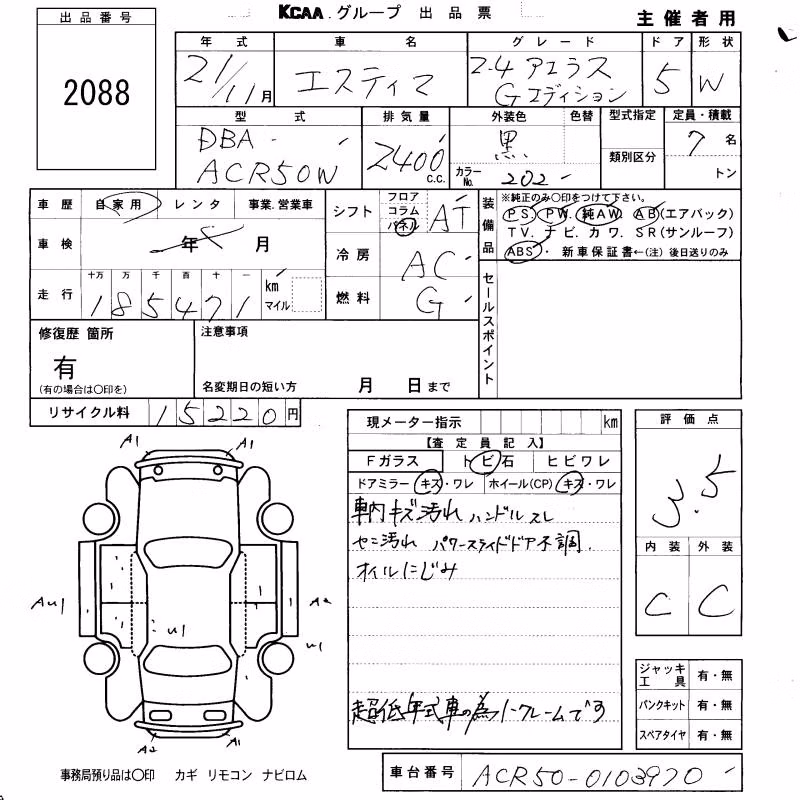 KCAA グループ 出品票
主催者用
出品番号
2088
年式 車名 グレード ドア 形状
21/11月 エスティマ 2.4 アエラス Gエディション 5 W
型式 排気量 外装色 色替 型式指定 定員・積載
類別区分
DBA-
ACR50W
2400 c.c.
黒
カラーNo. 202
7名
トン
車歴 自家用 レンタ 事業.営業車
車検 年 月
走行 十万 万 千 百 十 一
185471 km マイル
シフト フロア コラム パネル AT
冷房 AC
燃料 G
装備品
※純正のみ○印をつけて下さい。
PS. PW. 純AW. AB(エアバック)
TV. ナビ. カワ. SR(サンルーフ)
ABS・ 新車保証書←(注) 後日送りのみ
セールスポイント
修復歴 箇所
有
(有の場合は○印を)
注意事項
名変期日の短い方 月 日まで
リサイクル料 15220円
現メーター指示 km
【査定員記入】
Fガラス トビ石 ヒビワレ
ドアミラー キズ・ワレ ホイール(CP) キズ・ワレ
車内キズ汚れ ハンドルスレ
セニ汚れ パワースライドドア不調.
オイルにじみ
超低年式車の為ノークレームです
評価点
3.5
内装 外装
C C
A1 A1
AU1 A2
U1
U1
A2 A1
ジャッキ工具 有・無
パンクキット 有・無
スペアタイヤ 有・無
事務局預り品は○印 カギ リモコン ナビロム
車台番号 ACR50-0103970